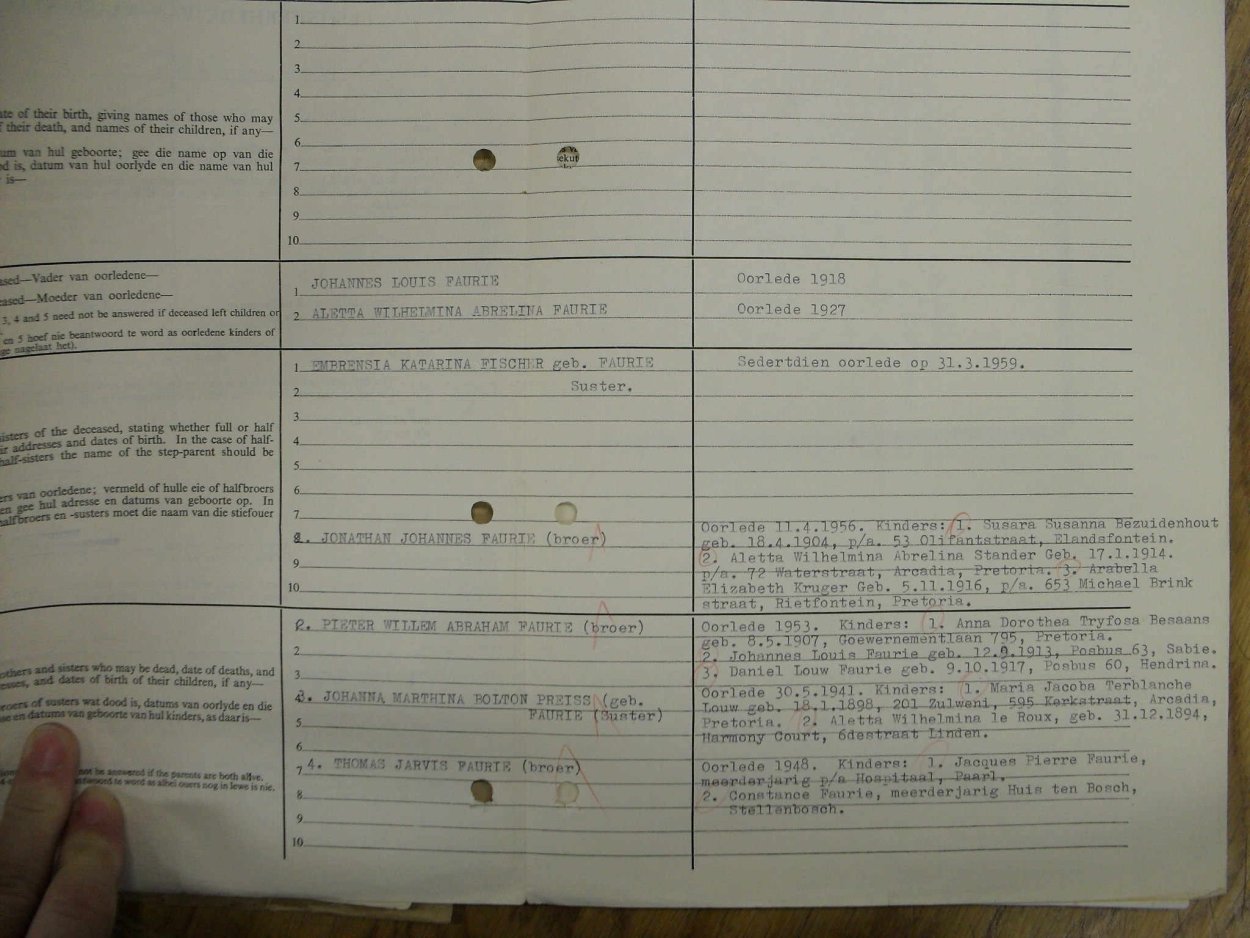 1
2
3
4
5
6
7
8
9
10
ate of their birth, giving names of those who may
their death, and names of their children, if any—
um van hul geboorte; gee die name op van die
is, datum van hul oorlyde en die name van hul
is—
ekut
ased—Vader van oorledene—
1 JOHANNES LOUIS FAURIE Oorlede 1918
eased—Moeder van oorledene—
2 ALETTA WILHELMINA ABRELINA FAURIE Oorlede 1927
3, 4 and 5 need not be answered if deceased left children or
en 5 hoef nie beantwoord te word as oorledene kinders of
nagelaat het).
1 EMBRENSIA KATARINA FISCHER geb. FAURIE Sedertdien oorlede op 31.3.1959.
2 Suster.
3
4
5
6
7
sisters of the deceased, stating whether full or half
addresses and dates of birth. In the case of half-
half-sisters the name of the step-parent should be
ers van oorledene; vermeld of hulle eie of halfbroers
en gee hul adresse en datums van geboorte op. In
halfbroers en -susters moet die naam van die stiefouer
1. JONATHAN JOHANNES FAURIE (broer)
9
10
Oorlede 11.4.1956. Kinders: 1. Susara Susanna Bezuidenhout
geb. 18.4.1904, p/a. 53 Olifantstraat, Elandsfontein.
2. Aletta Wilhelmina Abrelina Stander Geb. 17.1.1914.
p/a. 72 Waterstraat, Arcadia, Pretoria. 3. Arabella
Elizabeth Kruger Geb. 5.11.1916, p/a. 653 Michael Brink
straat, Rietfontein, Pretoria.
others and sisters who may be dead, date of deaths, and
esses, and dates of birth of their children, if any—
broers of susters wat dood is, datums van oorlyde en die
en datums van geboorte van hul kinders, as daar is—
not be answered if the parents are both alive.
te word as albei ouers nog in lewe is nie.
2. PIETER WILLEM ABRAHAM FAURIE (broer)
2
3
Oorlede 1953. Kinders: 1. Anna Dorothea Tryfosa Besaans
geb. 8.5.1907, Goewernementlaan 795, Pretoria.
2. Johannes Louis Faurie geb. 12.9.1913, Posbus 63, Sabie.
3. Daniel Louw Faurie geb. 9.10.1917, Posbus 60, Hendrina.
3. JOHANNA MARTHINA BOLTON PREISS (geb.
5 FAURIE (Suster)
6
Oorlede 30.5.1941. Kinders: 1. Maria Jacoba Terblanche
Louw geb. 18.1.1898, 201 Zulweni, 595 Kerkstraat, Arcadia,
Pretoria. 2. Aletta Wilhelmina le Roux, geb. 31.12.1894,
Harmony Court, 6destraat Linden.
7 4. THOMAS JARVIS FAURIE (broer)
8
9
10
Oorlede 1948. Kinders: 1. Jacques Pierre Faurie,
meerderjarig p/a Hospitaal, Paarl.
2. Constance Faurie, meerderjarig Huis ten Bosch,
Stellenbosch.